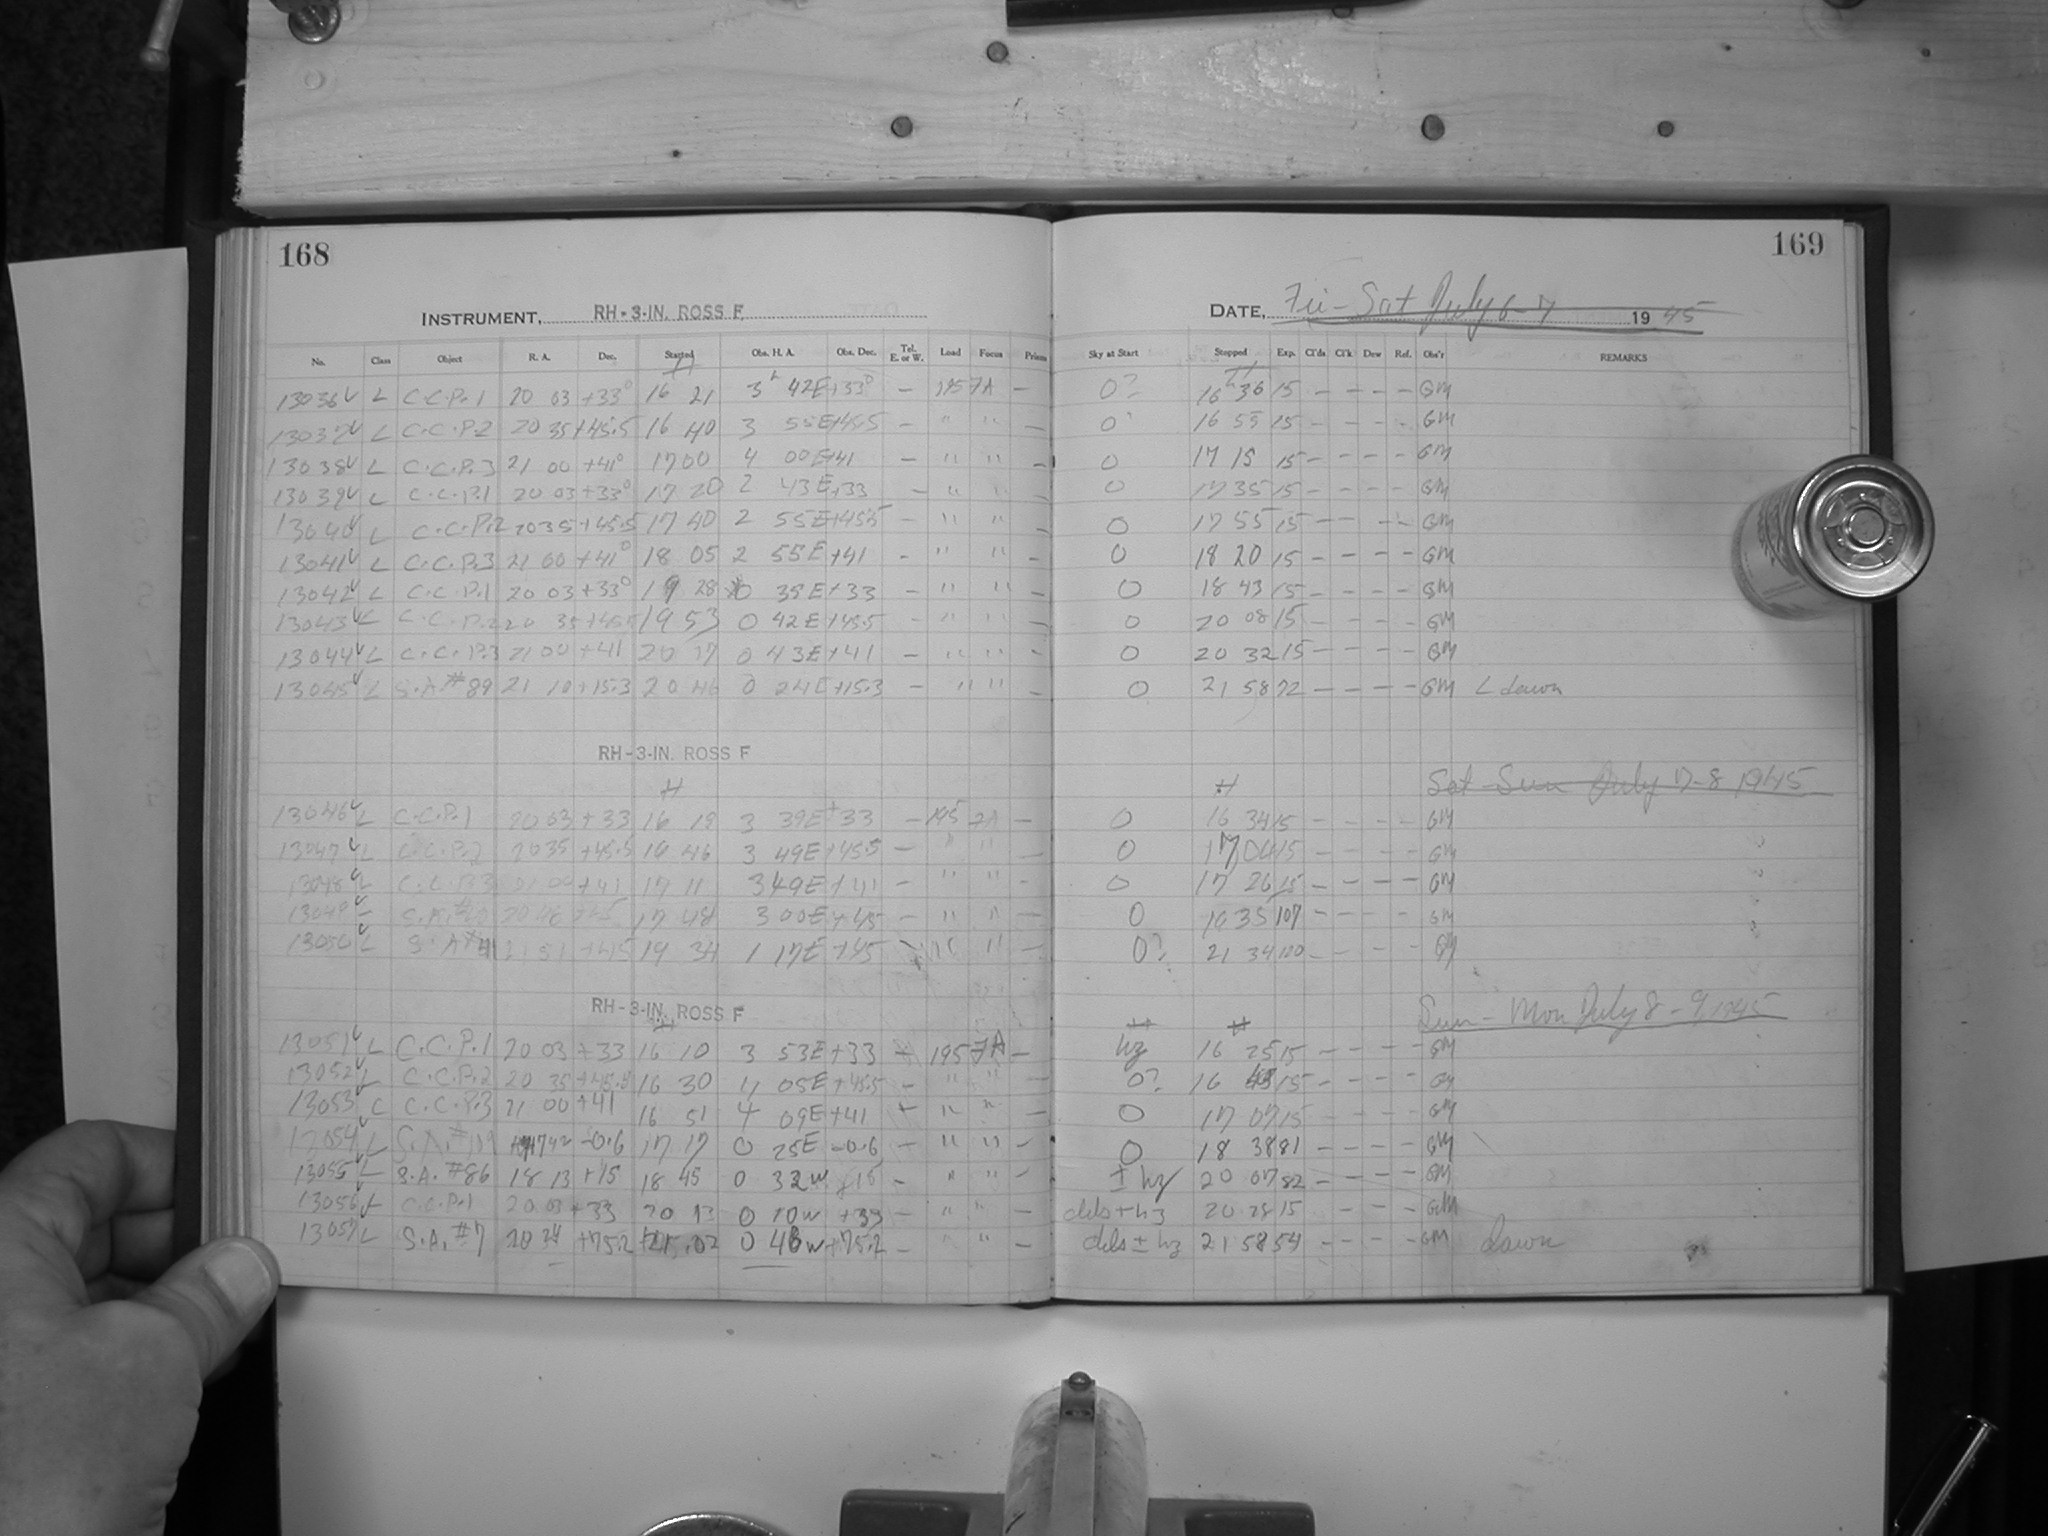 168
169
INSTRUMENT, RH-3-IN. ROSS F
DATE, Fri-Sat July 6-7 1945
No. Class Object R. A. Dec. Started Obs. H. A. Obs. Dec. Tel. E. or W. Load Focus Prisms Sky at Start Stopped Exp. Cl'ds Cl'k Dew Ref. Obs'r REMARKS
13036 L C.C.P.1 20 03 +33° 16 21 3 42E +33° – 195 7A – 0? 16 36 15 – – – – GM
13037 L C.C.P.2 20 35 +45.5 16 40 3 55E +45.5 – " " – 0? 16 55 15 – – – – GM
13038 L C.C.P.3 21 00 +41° 17 00 4 00E +41 – " " – 0 17 15 15 – – – – GM
13039 L C.C.P.1 20 03 +33° 17 20 2 43E +33 – " " – 0 17 35 15 – – – – GM
13040 L C.C.P.2 20 35 +45.5 17 40 2 55E +45.5 – " " – 0 17 55 15 – – – – GM
13041 L C.C.P.3 21 00 +41° 18 05 2 55E +41 – " " – 0 18 20 15 – – – – GM
13042 L C.C.P.1 20 03 +33° 19 28 0 35E +33 – " " – 0 18 43 15 – – – – GM
13043 L C.C.P.2 20 35 +45.5 19 53 0 42E +45.5 – " " – 0 20 08 15 – – – – GM
13044 L C.C.P.3 21 00 +41 20 17 0 43E +41 – " " – 0 20 32 15 – – – – GM
13045 L S.A.#89 21 10 +15.3 20 46 0 24E +15.3 – " " – 0 21 58 72 – – – – GM L dawn
RH-3-IN. ROSS F
Sat-Sun July 7-8 1945
13046 L C.C.P.1 20 03 +33 16 19 3 39E +33 – 195 7A – 0 16 34 15 – – – – GM
13047 L C.C.P.2 20 35 +45.5 16 46 3 49E +45.5 – " " – 0 17 15 – – – – GM
13048 L C.C.P.3 21 00 +41 17 11 3 49E +41 – " " – 0 17 26 15 – – – – GM
13049 L S.A.# 17 48 3 00E +45 – " " – 0 19 35 107 – – – – GM
13050 L S.A.#41 21 51 +45 19 34 1 17E +45 " " 0? 21 34 120 – – – – GM
RH-3-IN. ROSS F
Sun-Mon July 8-9, 1945
13051 L C.C.P.1 20 03 +33 16 10 3 53E +33 195 7A – hz 16 25 15 – – – – GM
13052 L C.C.P.2 20 35 +45.5 16 30 4 05E +45.5 – " " – 0? 16 15 – – – – GM
13053 L C.C.P.3 21 00 +41 16 51 4 09E +41 " " – 0 17 07 15 – – – – GM
13054 L S.A.#109 17 42 -0.6 17 17 0 25E -0.6 – " " – 0 18 38 81 – – – – GM
13055 L S.A. #86 18 13 +15 18 45 0 32W +15 – " " – ± hz 20 07 82 – – – – GM
13056 L C.C.P.1 20 03 +33 20 13 0 10W +33 – " " – clds + hz 20 28 15 – – – – GM
13057 L S.A. #7 20 +75.2 21.02 0 48W +75.2 – " " – clds ± hz 21 58 54 – – – – GM dawn